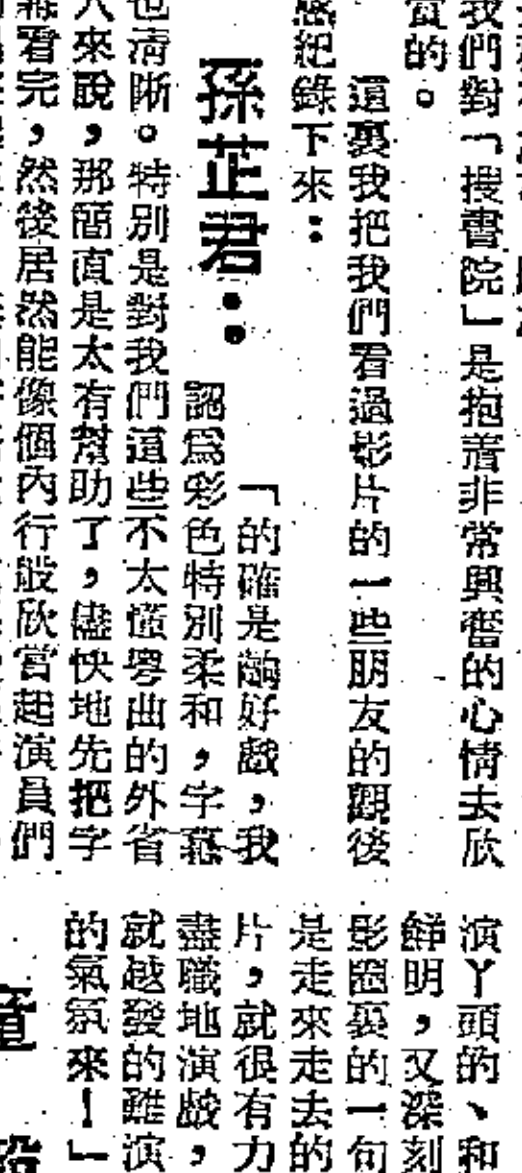 我們對「搜書院」是抱着非常興奮的心情去欣
賞的。
這裏我把我們看過影片的一些朋友的觀後
感紀錄下來：
孫芷君：
「的確是齣好戲，我
認爲彩色特別柔和，字幕
也清晰。特別是對我們這些不太懂粤曲的外省
人來說，那簡直是太有幫助了，儘快地先把字
幕看完，然後居然能像個內行般欣賞起演員們
演丫頭的、和
鮮明，又深刻
影圈裏的一句
是走來走去的
片，就很有力
盡職地演戲，
就越發的難演
的氣氛來！」